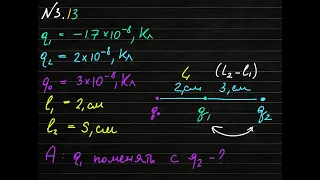 №3.13
q₁ = -1.7×10⁻⁸, Кл
q₂ = 2×10⁻⁸, Кл
q₀ = 3×10⁻⁸, Кл
l₁ = 2, см
l₂ = 5, см
l₁ (l₂-l₁)
2, см 3, см
q₀ q₁ q₂
A: q₁ поменять с q₂ -?